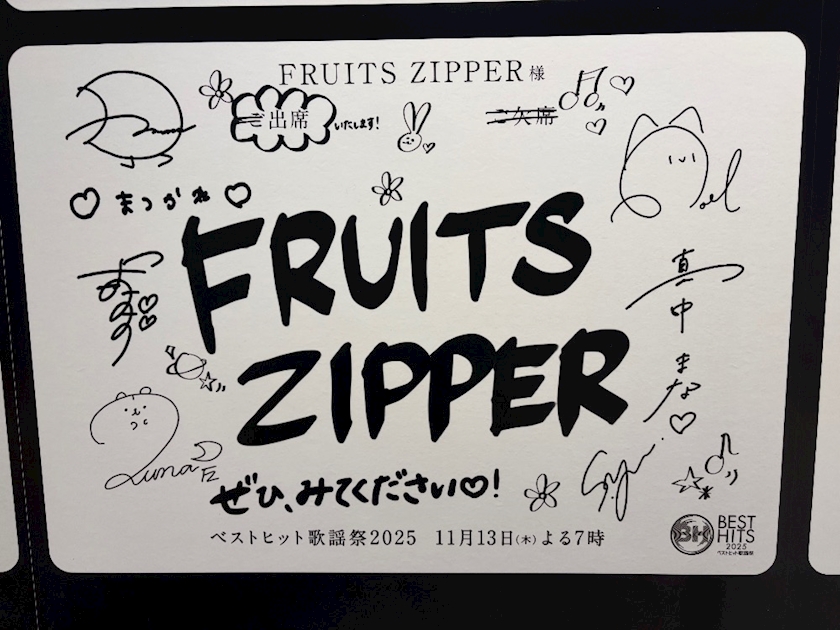 FRUITS ZIPPER様
ご出席 いたします!
ご欠席
まつかれ
Noel
FRUITS
真中
まな
ZIPPER
Luna
ぜひ、みてください♡!
ベストヒット歌謡祭2025 11月13日(木)よる7時
BH
BEST
HITS
2025
ベストヒット歌謡祭